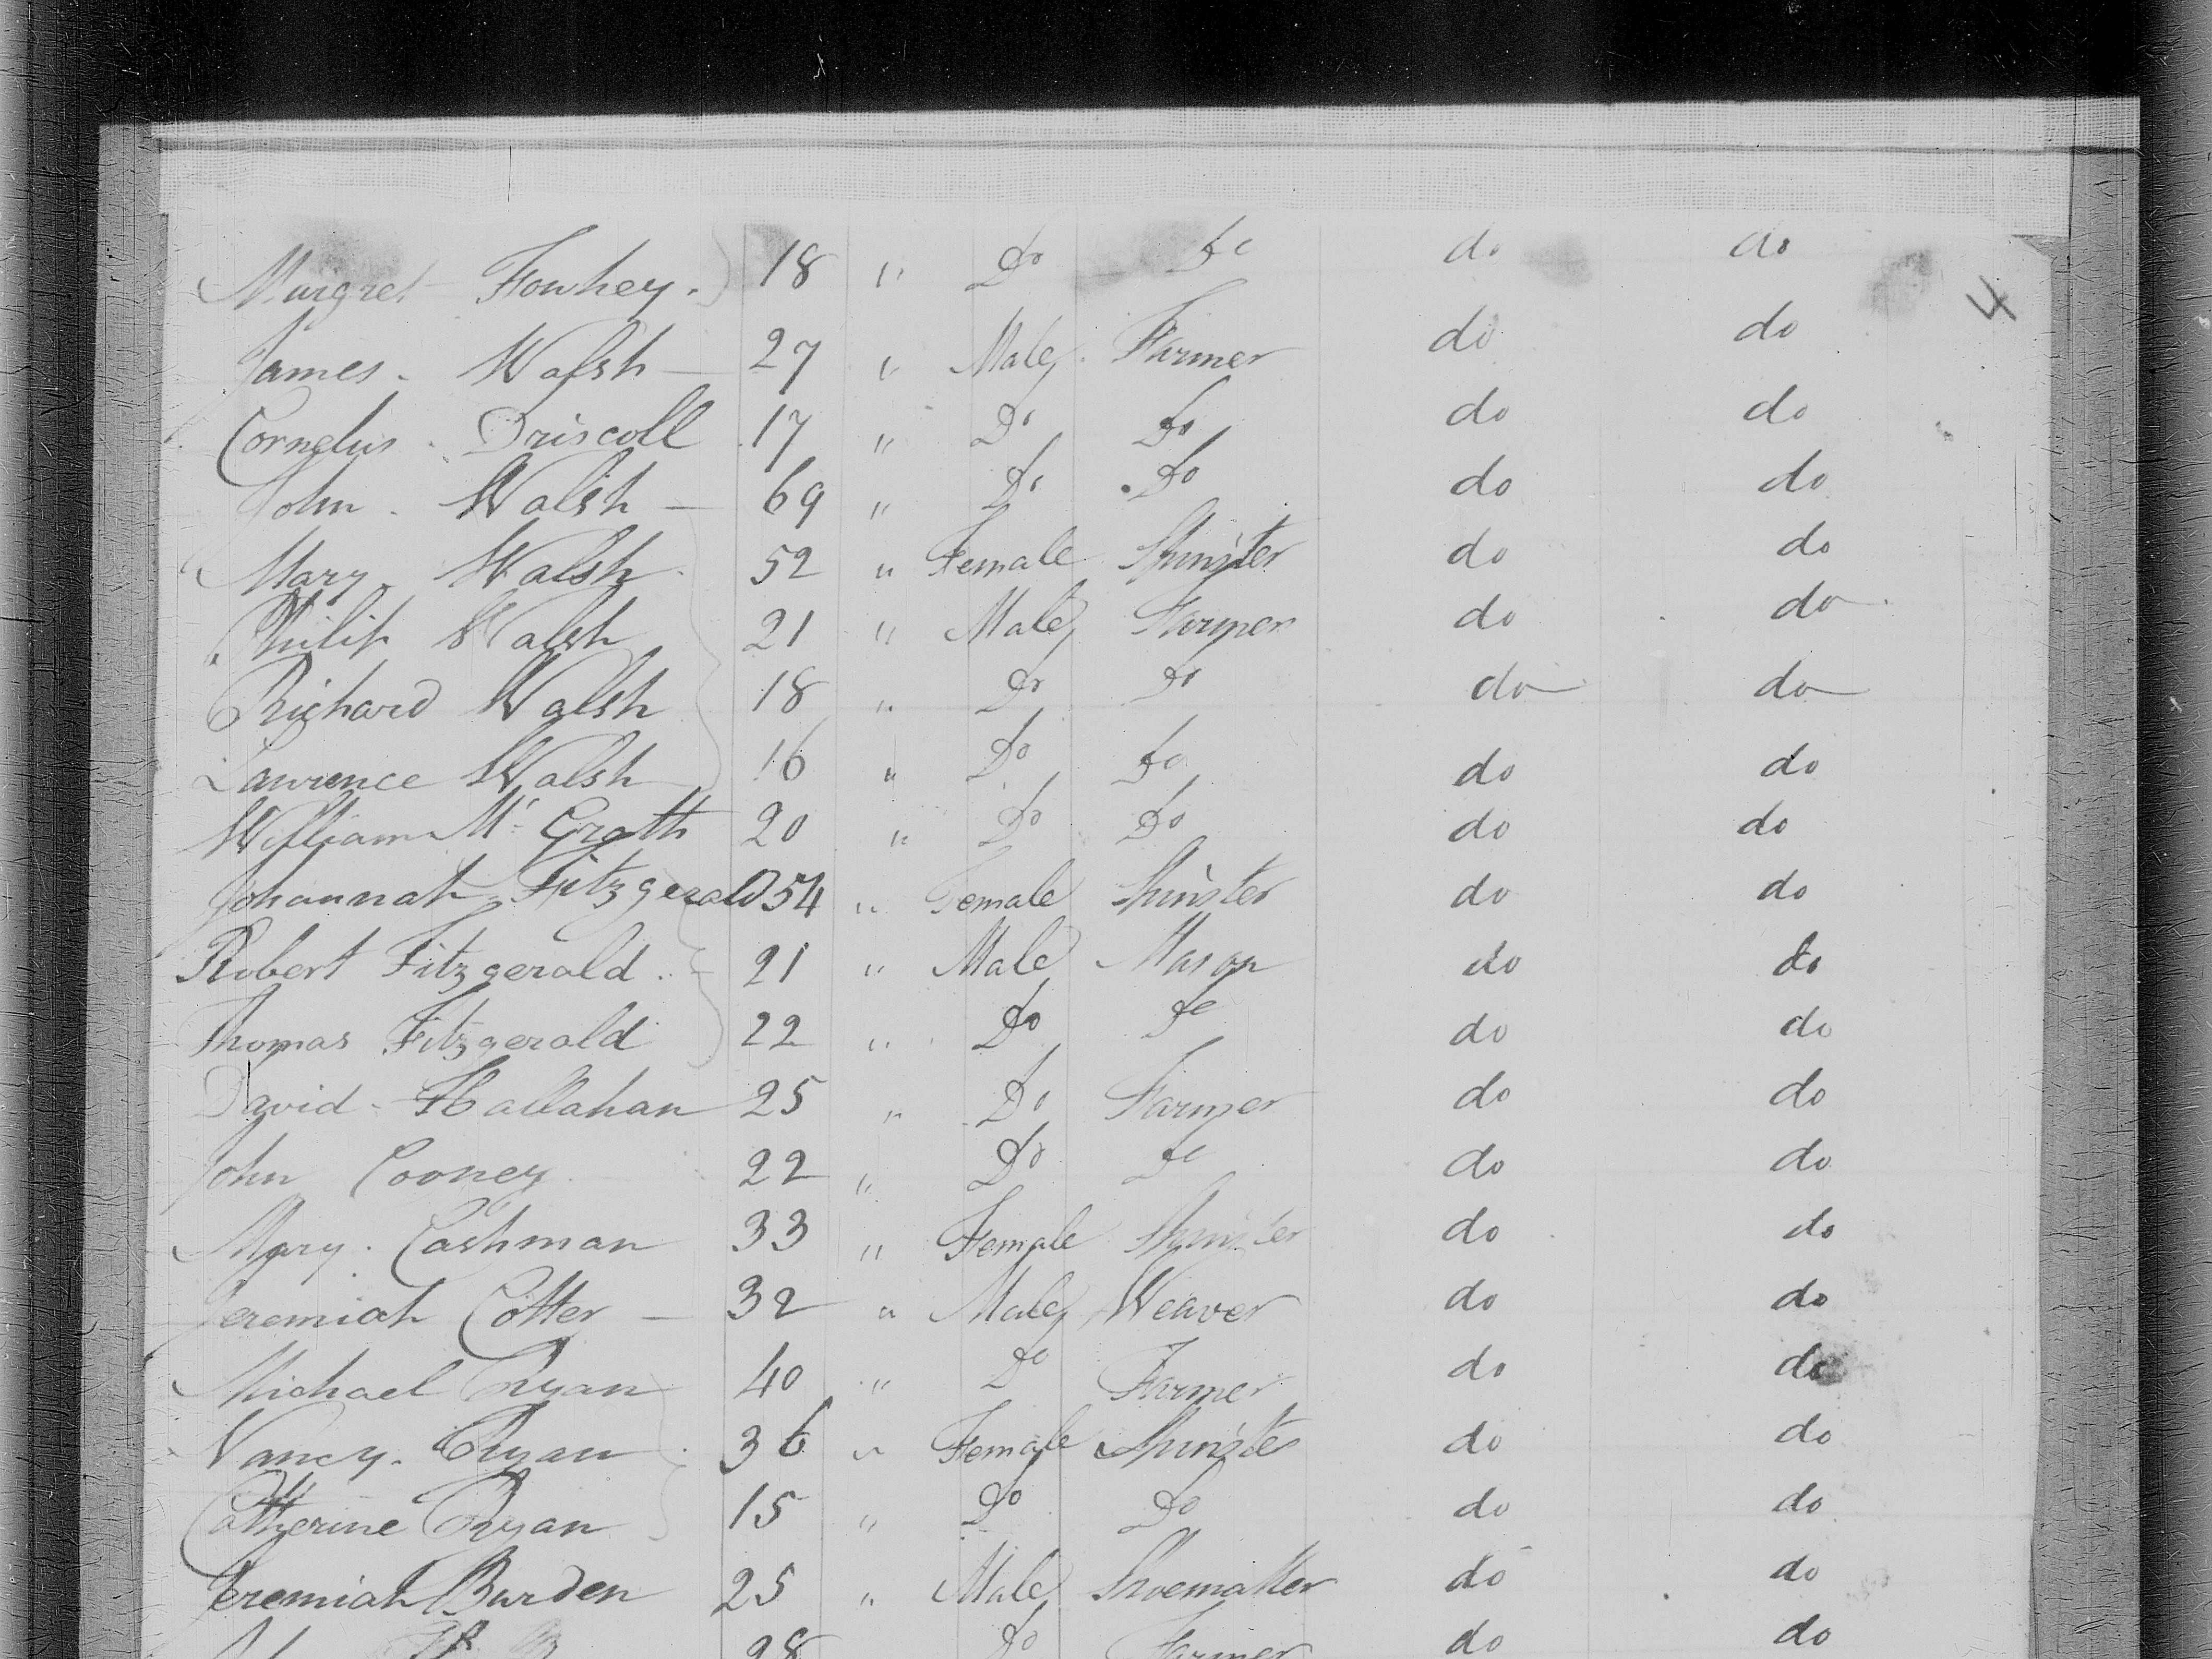 Margret Fowhey. 18 " Do Do do do
4
James. Walsh — 27 " Male Farmer do do
Cornelus. Driscoll 17 " Do Do do do
John. Walsh — 69 " Do Do do do
Mary. Walsh 52 " Female Spinster do do
Philip Walsh 21 " Male Farmer do do
Richard Walsh 18 " Do Do do do
Lawrence Walsh 16 " Do Do do do
William Mc Grath 20 " Do Do do do
Johannah Fitzgerald 54 " Female Spinster do do
Robert Fitzgerald. 21 " Male Mason do do
Thomas Fitzgerald 22 " Do Do do do
David Hallahan 25 " Do Farmer do do
John Cooney 22 " Do Do do do
Mary. Cashman 33 " Female Spinster do do
Jeremiah Cotter — 32 " Male Weaver do do
Michael Ryan 40 " Do Farmer do do
Nancy. Ryan 36 " Female Spinster do do
Catherine Ryan 15 " Do Do do do
Jeremiah Burden 25 " Male Shoemaker do do
28 Do Farmer do do